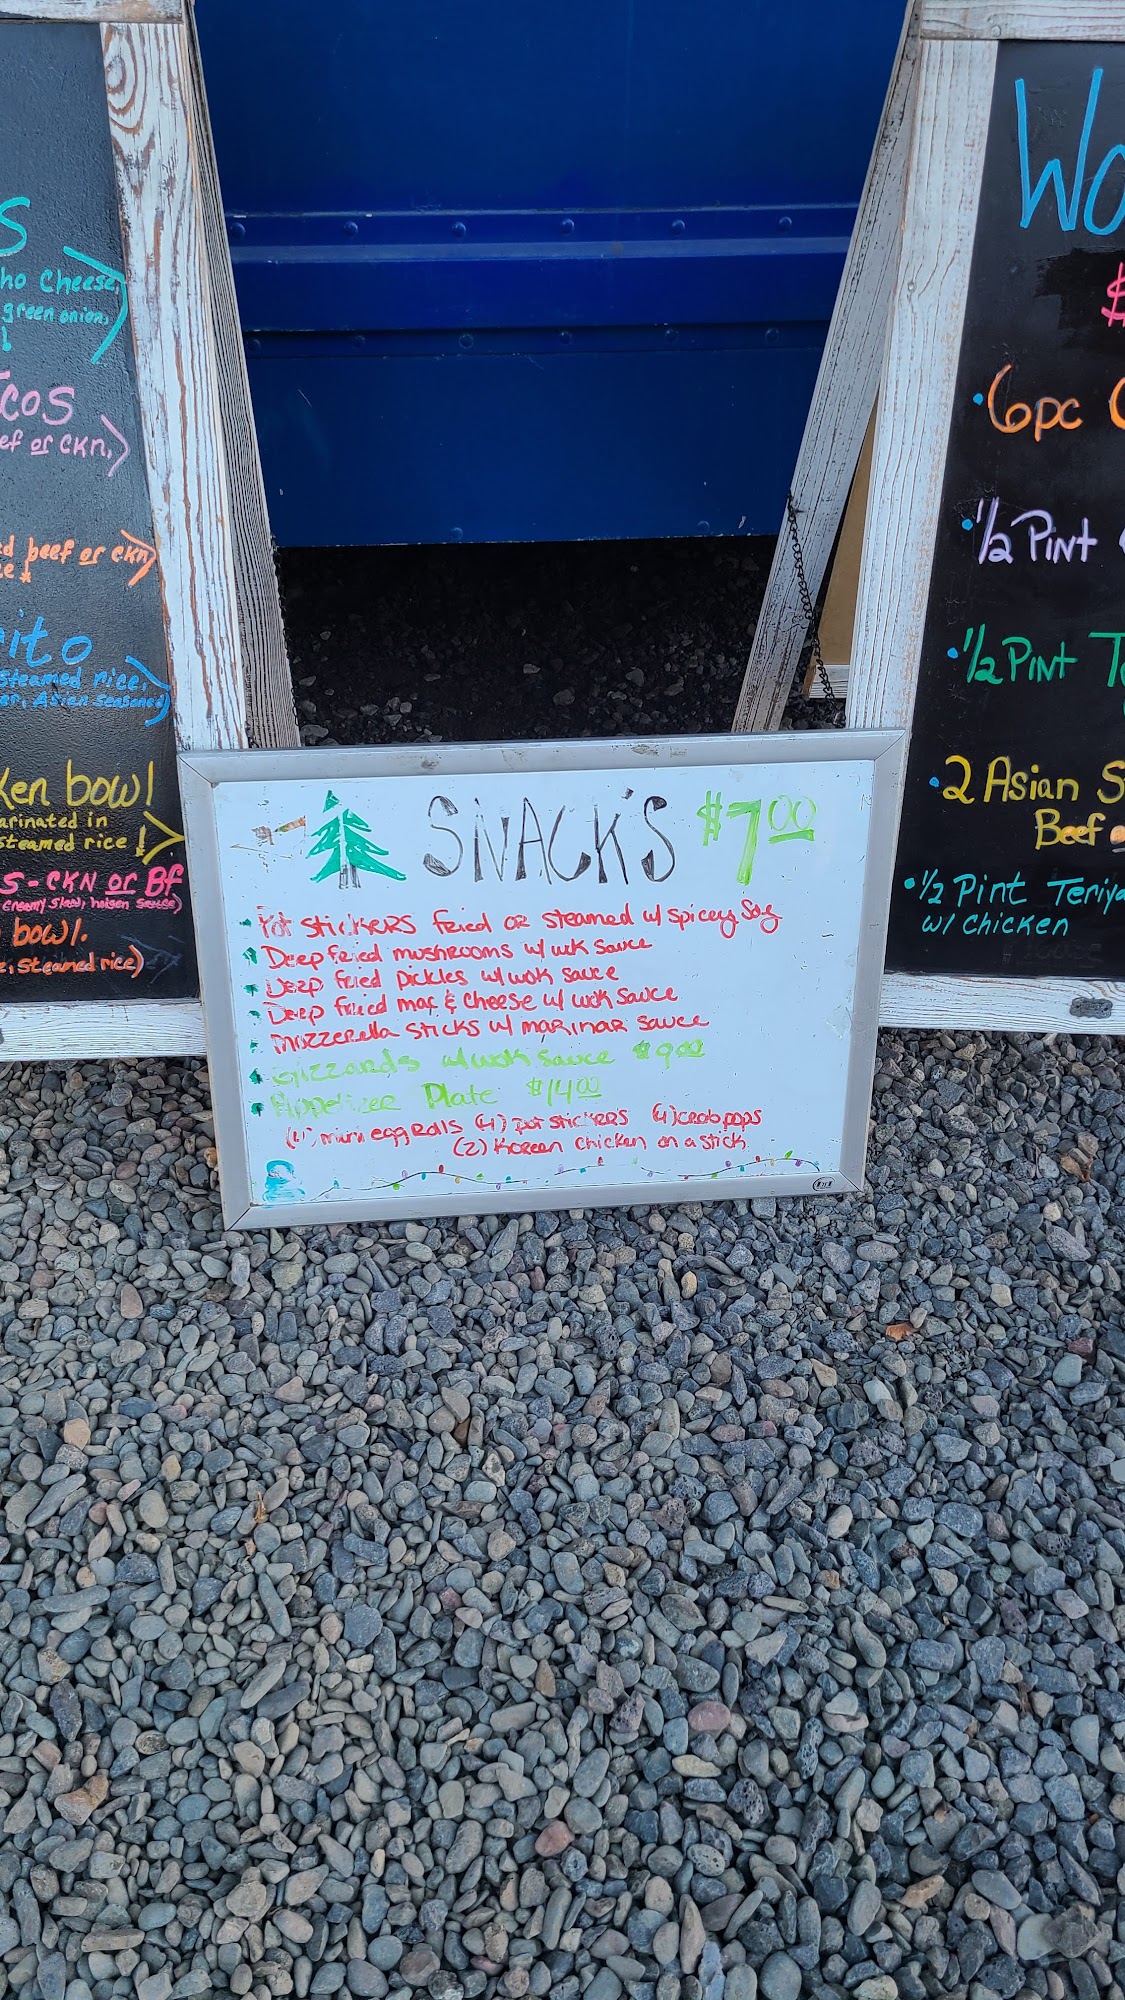 S
ho Cheese,
green onion,
!
cos
ef or CKN,
d beef or ckn
e*
ito
Steamed rice,
er, Asian seasoned
ken bowl
arinated in
steamed rice!
S - CKN or Bf
Creamy Slaw, hoisen sauce)
bowl.
e, Steamed rice)
SNACK'S $7.00
Pot StickeRS fried OR Steamed w/ Spicey Soy
Deep fried mushrooms w/ wok sauce
Deep fried pickles w/ wok sauce
Deep fried mac & cheese w/ wok sauce
Mozzerella Sticks w/ maRinaR Sauce
Gizzards w/ wok Sauce $9.00
Appetizer Plate $14.00
(4) mini egg Rolls (4) pot stickers (4) crab pops
(2) Korean Chicken on a stick
Wo
$
6pc
1/2 Pint
1/2 Pint T
2 Asian S
Beef
1/2 Pint Teriya
w/ Chicken